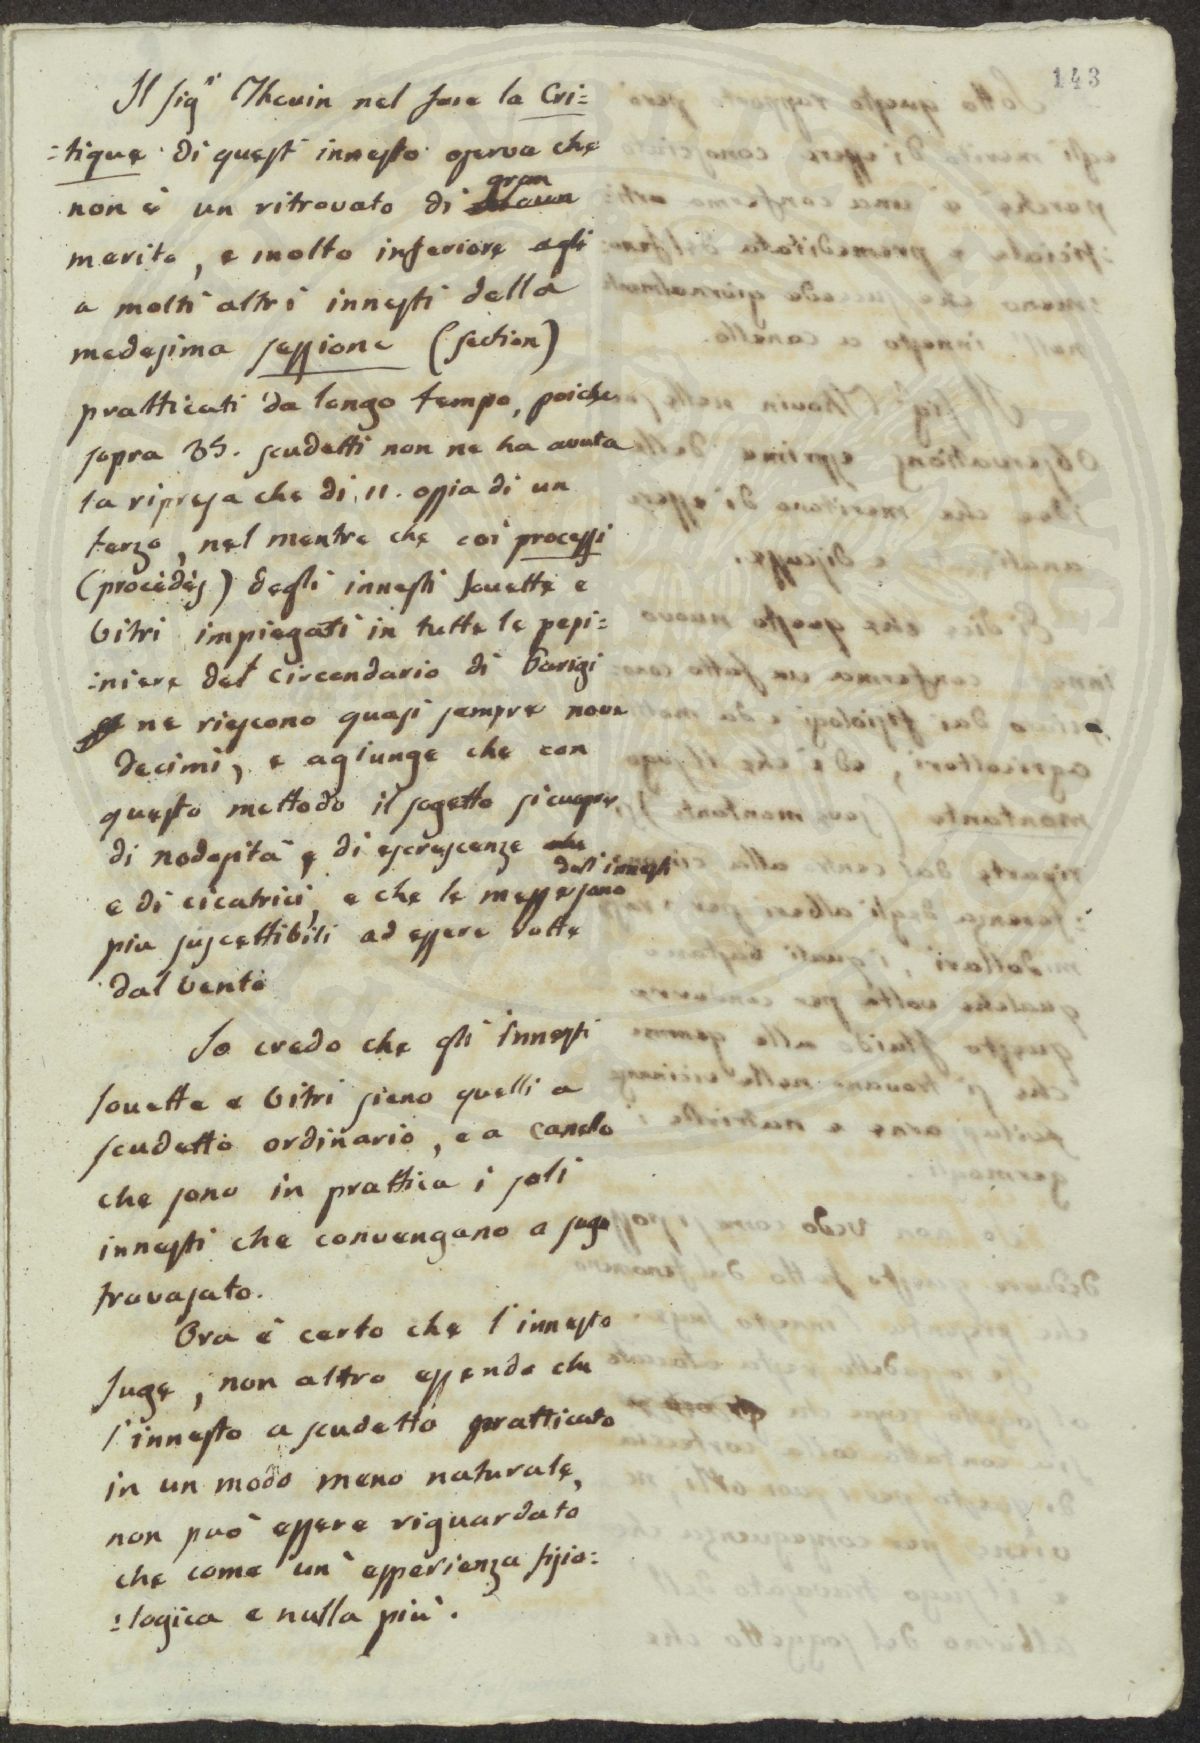 143
Il sigr Thouin nel fare la Cri=
=tique di quest' innesto osserva che
non è un ritrovato di gran
merito, e molto inferiore agli
a molti altri innesti della
medesima sessione (section)
pratticati da longo tempo, poiche
sopra 35. scudetti non ne ha avuta
la ripresa che di 11. ossia di un
terzo, nel mentre che coi processi
(procédés) degli innesti Jouette e
Vitri impiegati in tutte le pepi=
=niere del circondario di Parigi
ne riescono quasi sempre nove
decimi, e agiunge che con
questo mettodo il sogetto si cuopre
di nodosità e di escrescenze
dell'innesti
e di cicatrici, e che le messe sono
più suscettibili ad essere rotte
dal vento
Io credo che gli innesti
Jouette e Vitri sieno quelli a
scudetto ordinario, e a canelo
che sono in prattica i soli
innesti che convengano a sugo
travasato.
Ora è certo che l'innesto
Luge, non altro essendo che
l'innesto a scudetto pratticato
in un modo meno naturale,
non può essere riguardato
che come un' esperienza fisio=
=logica e nulla più.